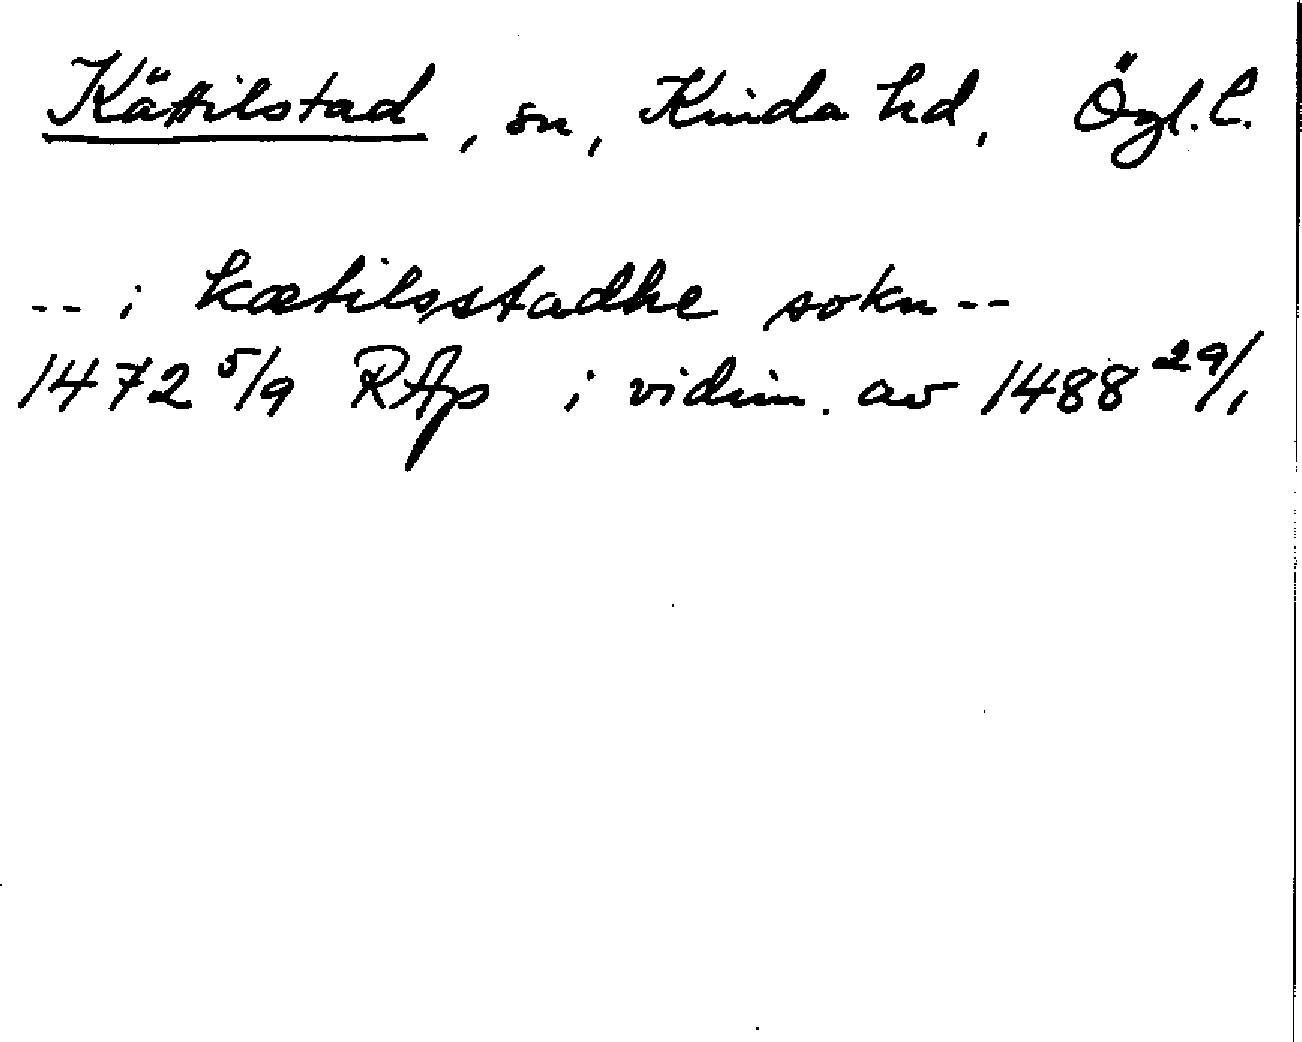 Kättilstad, sn, Kinda hd, Ögl. l.
-- i kætilsstadhe sokn --
1472 5/9 RAp i vidim. av 1488 29/1